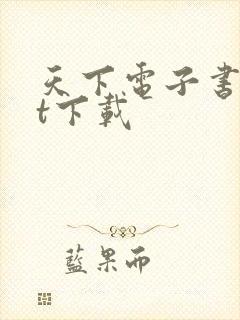 天下電子書
t下載
藍果而